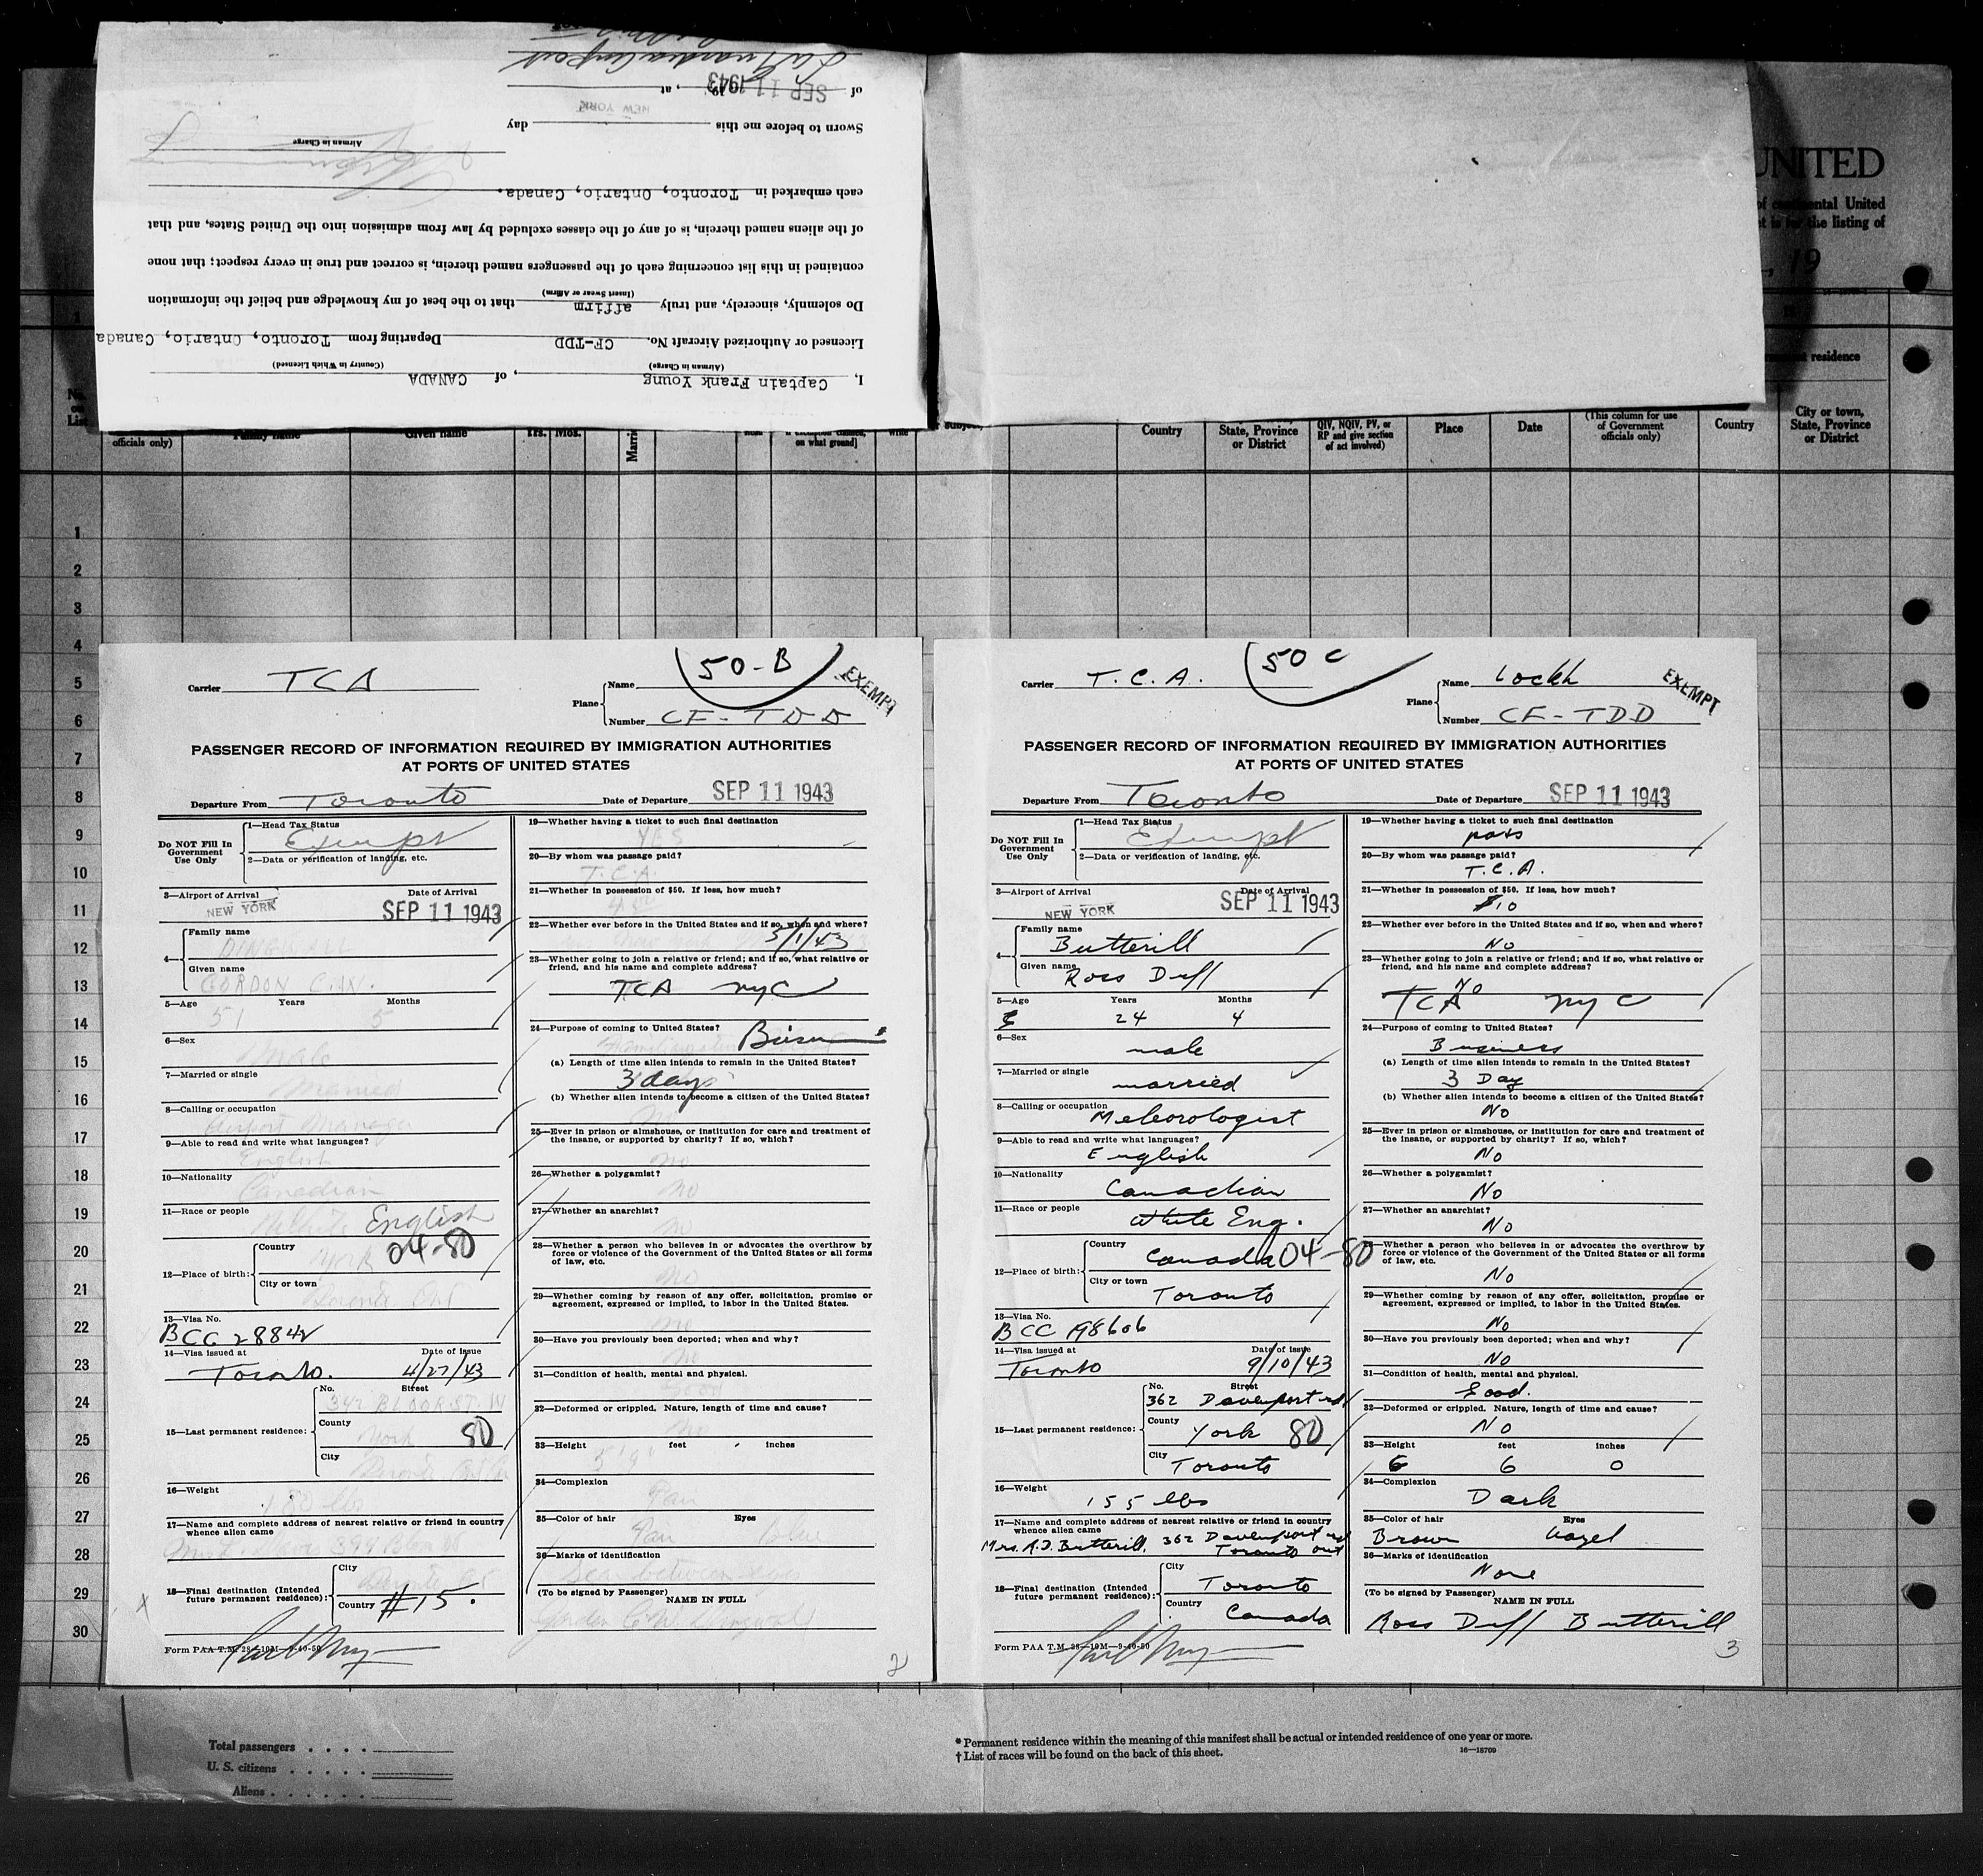 I, Captain Frank Young, of CANADA
(Airman in Charge) (Country in Which Licensed)
Licensed or Authorized Aircraft No. CF-TDD Departing from Toronto, Ontario, Canada
Do solemnly, sincerely, and truly affirm that to the best of my knowledge and belief the information
(Insert Swear or Affirm)
contained in this list concerning each of the passengers named therein, is correct and true in every respect; that none
of the aliens named therein, is of any of the classes excluded by law from admission into the United States, and that
each embarked in Toronto, Ontario, Canada.
Airman in Charge
Sworn to before me this day
NEW YORK
of SEP 11 1943 19 , at
UNITED
of continental United
the listing of
, 19
residence
No. on List
officials only) Family name Given name Yrs. Mos. on what ground] write subject, Country State, Province or District QIV, NQIV, PV, or RP and give section of act involved) Place Date (This column for use of Government officials only) Country City or town, State, Province or District
1
2
3
4
5
6
7
8
9
10
11
12
13
14
15
16
17
18
19
20
21
22
23
24
25
26
27
28
29
30
50-B
Carrier TCA Plane Name EXEMPT
Number CF-TDD
PASSENGER RECORD OF INFORMATION REQUIRED BY IMMIGRATION AUTHORITIES
AT PORTS OF UNITED STATES
Departure From Toronto Date of Departure SEP 11 1943
Do NOT Fill In Government Use Only
1—Head Tax Status
Exempt
2—Data or verification of landing, etc.
3—Airport of Arrival Date of Arrival
NEW YORK SEP 11 1943
4— Family name
DINGWALL
Given name
GORDON C.W.
5—Age Years Months
51 5
6—Sex
Male
7—Married or single
Married
8—Calling or occupation
Airport Manager
9—Able to read and write what languages?
English
10—Nationality
Canadian
11—Race or people
White English
12—Place of birth: Country
York 04-80
City or town
Toronto Ont
13—Visa No.
BCC 28842
14—Visa issued at Date of issue
Toronto. 4/27/43
15—Last permanent residence: No. Street
BLOOR ST. W
County
York 80
City
16—Weight
180 lbs
17—Name and complete address of nearest relative or friend in country
whence alien came
18—Final destination (Intended future permanent residence): City
Country #15.
Form PAA T.M. 28—10M—9-40-50
19—Whether having a ticket to such final destination
YES
20—By whom was passage paid?
T.C.A.
21—Whether in possession of $50. If less, how much?
22—Whether ever before in the United States and if so, when and where?
5/1/43
23—Whether going to join a relative or friend; and if so, what relative or
friend, and his name and complete address?
TCA NYC
24—Purpose of coming to United States?
Business
(a) Length of time alien intends to remain in the United States?
3 days
(b) Whether alien intends to become a citizen of the United States?
25—Ever in prison or almshouse, or institution for care and treatment of
the insane, or supported by charity? If so, which?
no
26—Whether a polygamist?
no
27—Whether an anarchist?
no
28—Whether a person who believes in or advocates the overthrow by
force or violence of the Government of the United States or all forms
of law, etc.
no
29—Whether coming by reason of any offer, solicitation, promise or
agreement, expressed or implied, to labor in the United States.
no
30—Have you previously been deported; when and why?
no
31—Condition of health, mental and physical.
Good
32—Deformed or crippled. Nature, length of time and cause?
no
33—Height feet inches
34—Complexion
Fair
35—Color of hair Eyes
Fair blue
36—Marks of identification
(To be signed by Passenger) NAME IN FULL
2
50 C
Carrier T.C.A. Plane Name Lockh EXEMPT
Number CF-TDD
PASSENGER RECORD OF INFORMATION REQUIRED BY IMMIGRATION AUTHORITIES
AT PORTS OF UNITED STATES
Departure From Toronto Date of Departure SEP 11 1943
Do NOT Fill In Government Use Only
1—Head Tax Status
Exempt
2—Data or verification of landing, etc.
3—Airport of Arrival Date of Arrival
NEW YORK SEP 11 1943
4— Family name
Butterill
Given name
Ross Duff
5—Age Years Months
24 4
6—Sex
male
7—Married or single
married
8—Calling or occupation
Meteorologist
9—Able to read and write what languages?
English
10—Nationality
Canadian
11—Race or people
White Eng.
12—Place of birth: Country
Canada 04-80
City or town
Toronto
13—Visa No.
BCC 198606
14—Visa issued at Date of issue
Toronto 9/10/43
15—Last permanent residence: No. Street
362 Davenport rd
County
York 80
City
Toronto
16—Weight
155 lbs
17—Name and complete address of nearest relative or friend in country
whence alien came
Mrs. R.D. Butterill, 362 Davenport rd
Toronto ont
18—Final destination (Intended future permanent residence): City
Toronto
Country
Canada
Form PAA T.M. 28—10M—9-40-50
19—Whether having a ticket to such final destination
pass
20—By whom was passage paid?
T.C.A.
21—Whether in possession of $50. If less, how much?
$10
22—Whether ever before in the United States and if so, when and where?
No
23—Whether going to join a relative or friend; and if so, what relative or
friend, and his name and complete address?
No
TCA NYC
24—Purpose of coming to United States?
Business
(a) Length of time alien intends to remain in the United States?
3 Day
(b) Whether alien intends to become a citizen of the United States?
No
25—Ever in prison or almshouse, or institution for care and treatment of
the insane, or supported by charity? If so, which?
No
26—Whether a polygamist?
No
27—Whether an anarchist?
No
28—Whether a person who believes in or advocates the overthrow by
force or violence of the Government of the United States or all forms
of law, etc.
No
29—Whether coming by reason of any offer, solicitation, promise or
agreement, expressed or implied, to labor in the United States.
No
30—Have you previously been deported; when and why?
No
31—Condition of health, mental and physical.
Good.
32—Deformed or crippled. Nature, length of time and cause?
No
33—Height feet inches
6 6 0
34—Complexion
Dark
35—Color of hair Eyes
Brown hazel
36—Marks of identification
None
(To be signed by Passenger) NAME IN FULL
Ross Duff Butterill
3
Total passengers
U. S. citizens
Aliens
* Permanent residence within the meaning of this manifest shall be actual or intended residence of one year or more.
† List of races will be found on the back of this sheet. 16—18700